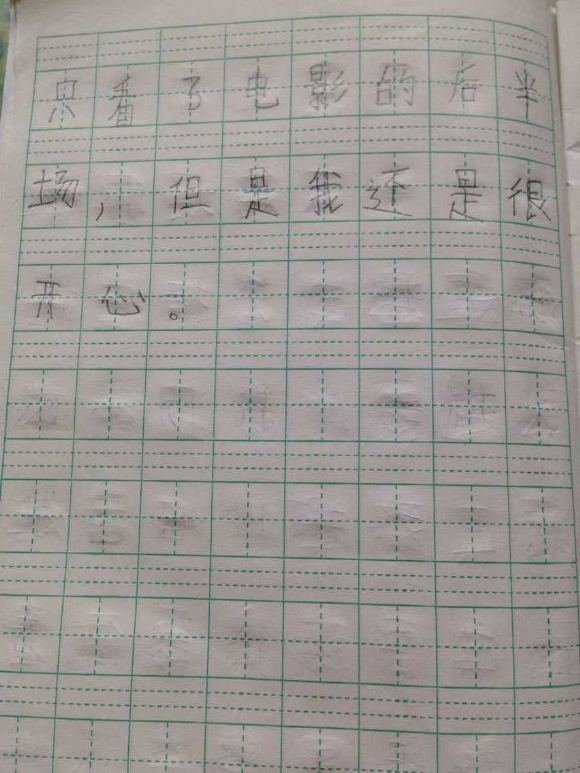 只看了电影的后半
场，但是我还是很
开心。